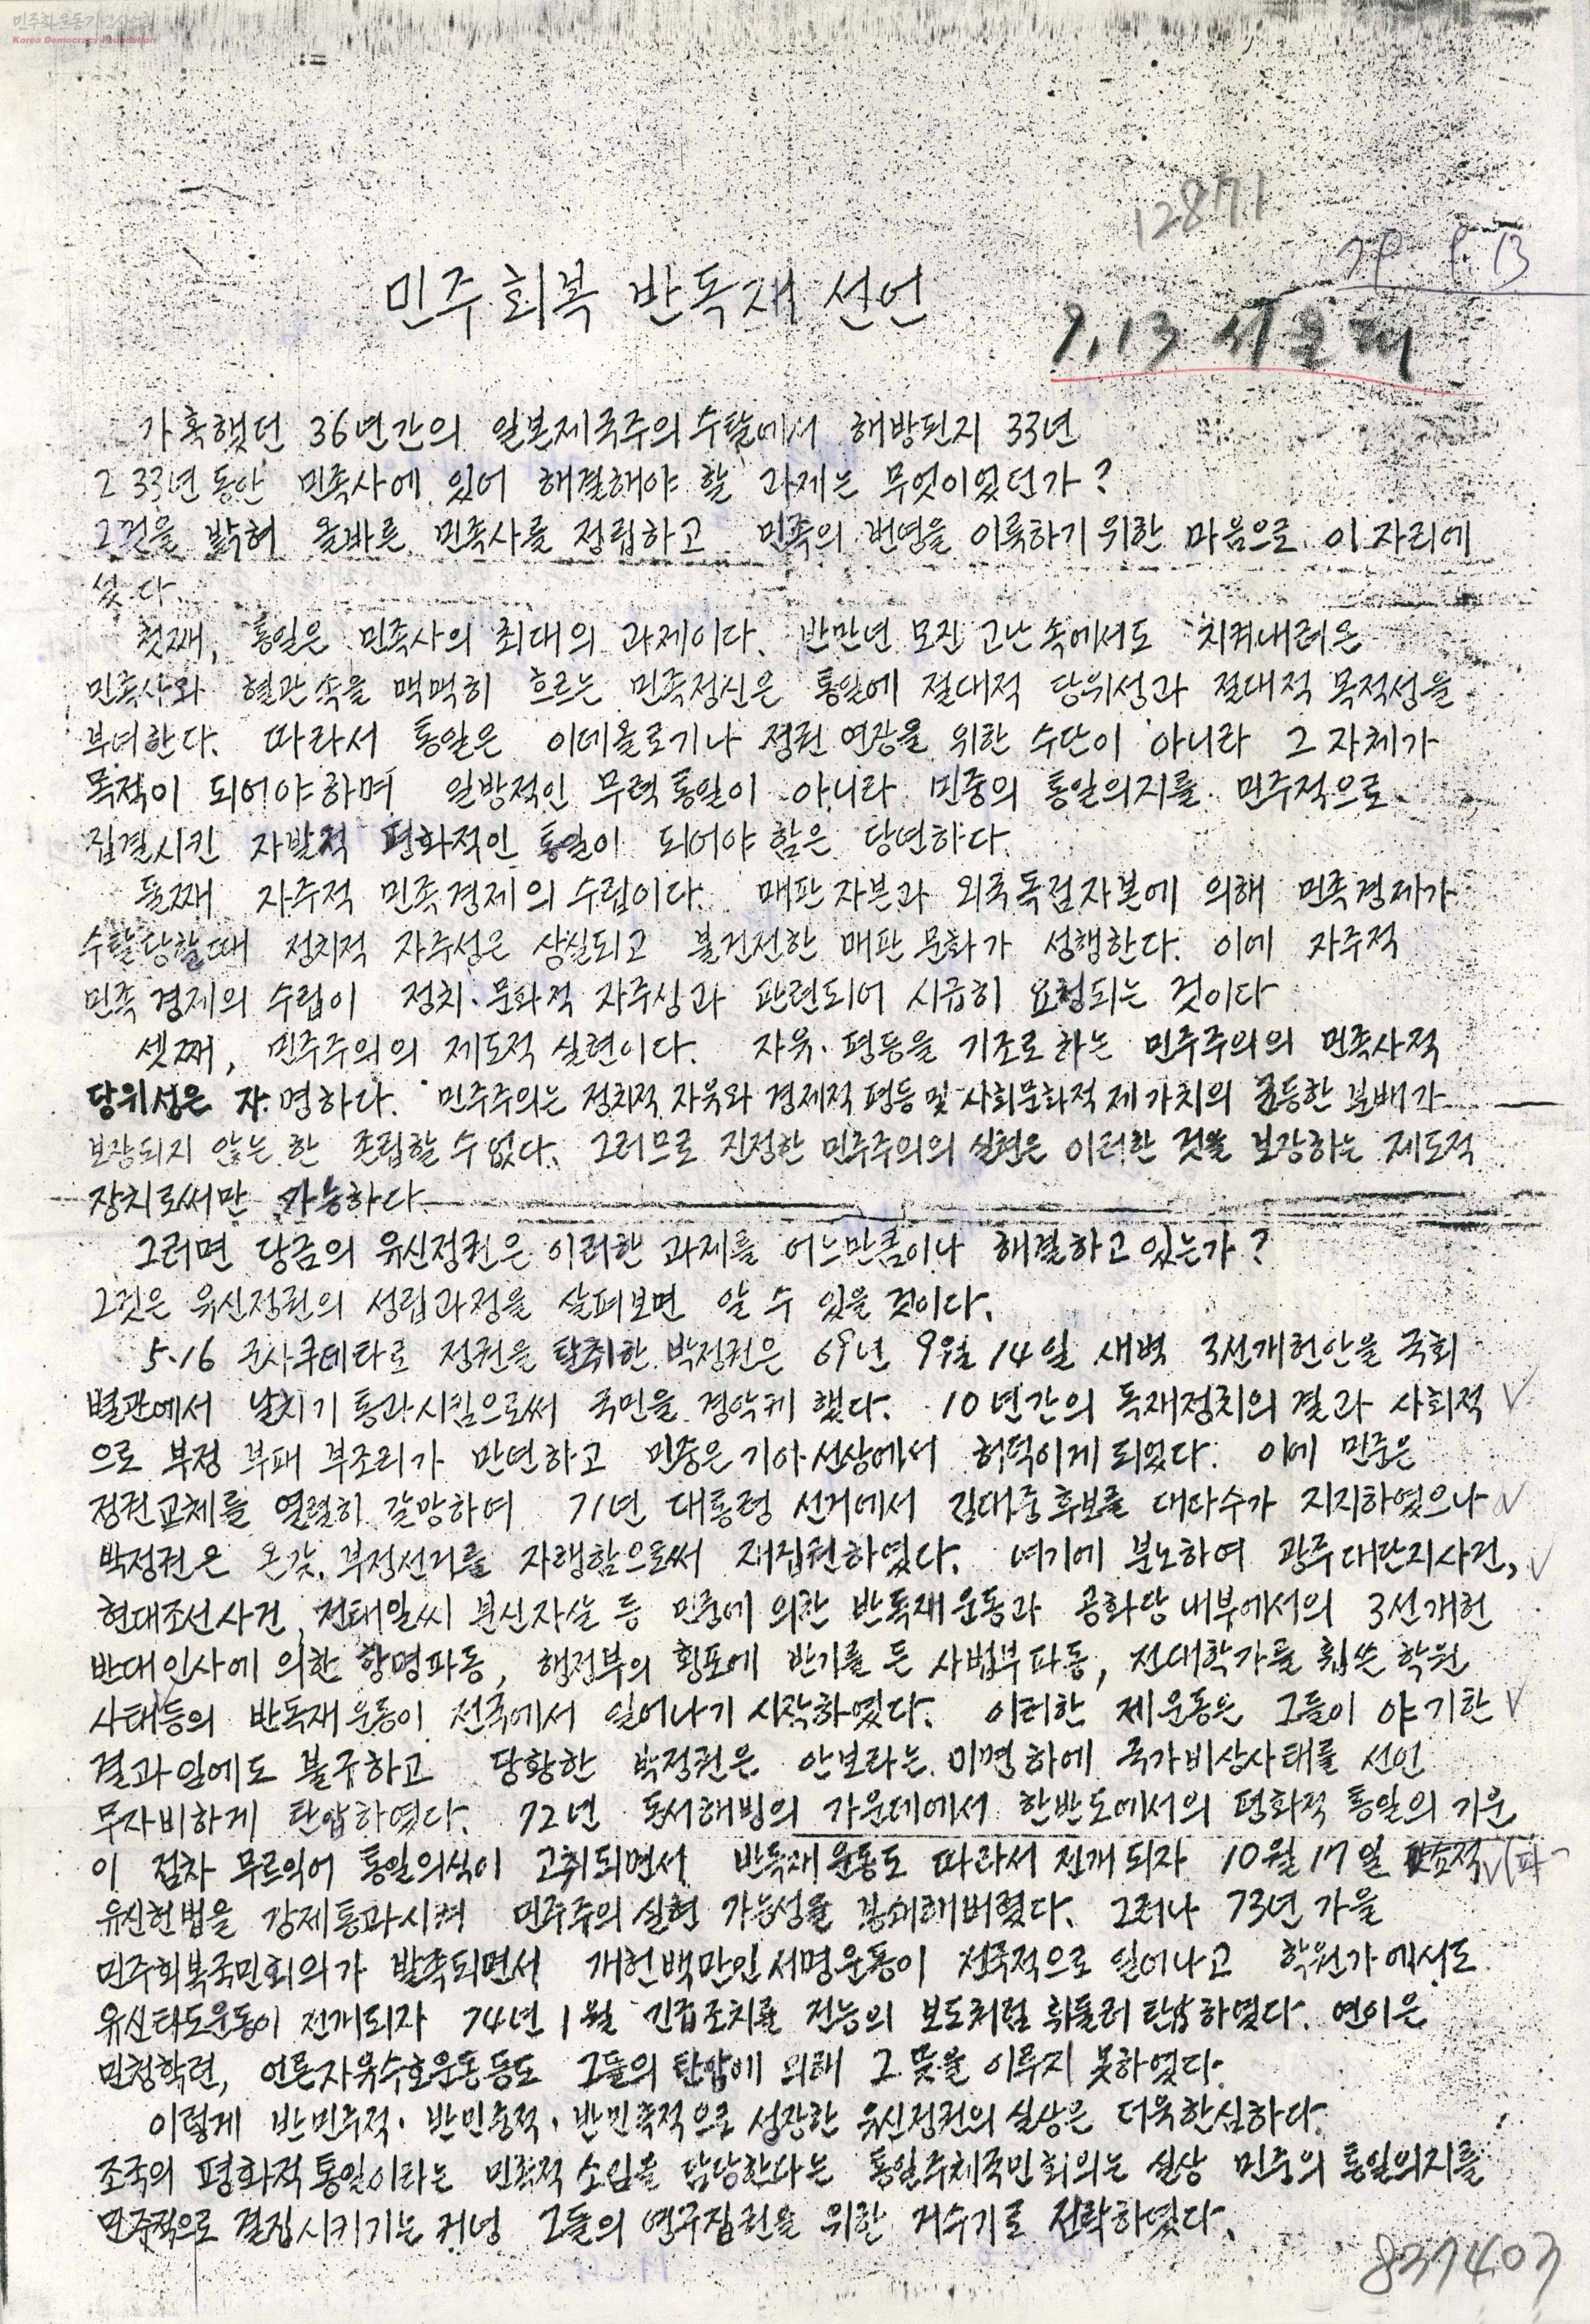 민주화운동기념사업회
Korea Democracy Foundation
12871
78 9 13
민주회복 반독재 선언
9.13 서울대
가혹했던 36년간의 일본제국주의 수탈에서 해방된지 33년
그 33년 동안 민족사에 있어 해결해야 할 과제는 무엇이었던가?
그것을 밝혀 올바른 민족사를 정립하고 민족의 번영을 이룩하기 위한 마음으로 이 자리에
섰다.
첫째, 통일은 민족사의 최대의 과제이다. 반만년 모진 고난 속에서도 지켜내려온
민족사와 혈관속을 맥맥히 흐르는 민족정신은 통일에 절대적 당위성과 절대적 목적성을
부여한다. 따라서 통일은 이데올로기나 정권 연장을 위한 수단이 아니라 그 자체가
목적이 되어야 하며 일방적인 무력통일이 아니라 민중의 통일의지를 민주적으로
집결시킨 자발적 평화적인 통일이 되어야 함은 당연하다.
둘째 자주적 민족경제의 수립이다. 매판자본과 외국독점자본에 의해 민족경제가
수탈당할때 정치적 자주성은 상실되고 불건전한 매판문화가 성행한다. 이에 자주적
민족경제의 수립이 정치·문화적 자주성과 관련되어 시급히 요청되는 것이다
셋째, 민주주의의 제도적 실현이다. 자유·평등을 기조로 하는 민주주의의 민족사적
당위성은 자명하다. 민주주의는 정치적 자유와 경제적 평등 및 사회문화적 제가치의 균등한 분배가
보장되지 않는 한 존립할 수 없다. 그러므로 진정한 민주주의의 실현은 이러한 것을 보장하는 제도적
장치로써만 가능하다.
그러면 당금의 유신정권은 이러한 과제를 어느만큼이나 해결하고 있는가?
그것은 유신정권의 성립과정을 살펴보면 알 수 있을 것이다.
5.16 군사쿠데타로 정권을 탈취한 박정권은 69년 9월 14일 새벽 3선개헌안을 국회
별관에서 날치기 통과시킴으로써 국민을 경악케 했다. 10년간의 독재정치의 결과 사회적
으로 부정 부패 부조리가 만연하고 민중은 기아선상에서 허덕이게 되었다. 이에 민중은
정권교체를 열렬히 갈망하여 71년 대통령 선거에서 김대중후보를 대다수가 지지하였으나
박정권은 온갖 부정선거를 자행함으로써 재집권하였다. 여기에 분노하여 광주대단지사건,
현대조선사건, 전태일씨 분신자살 등 민중에 의한 반독재운동과 공화당 내부에서의 3선개헌
반대인사에 의한 항명파동, 행정부의 횡포에 반기를 든 사법부파동, 전대학가를 휩쓴 학원
사태등의 반독재운동이 전국에서 일어나기 시작하였다. 이러한 제운동은 그들이 야기한
결과임에도 불구하고 당황한 박정권은 안보라는 미명하에 국가비상사태를 선언
무자비하게 탄압하였다. 72년 동서해빙의 가운데에서 한반도에서의 평화적 통일의 기운
이 점차 무르익어 통일의식이 고취되면서 반독재운동도 따라서 전개되자 10월 17일
유신헌법을 강제통과시켜 민주주의 실현 가능성을 봉쇄해버렸다. 그러나 73년 가을
민주회복국민회의가 발족되면서 개헌백만인서명운동이 전국적으로 일어나고 학원가에서도
유신타도운동이 전개되자 74년 1월 긴급조치를 전능의 보도처럼 휘둘러 탄압하였다. 연이은
민청학련, 언론자유수호운동등도 그들의 탄압에 의해 그 뜻을 이루지 못하였다.
이렇게 반민주적·반민중적·반민족적으로 성장한 유신정권의 실상은 더욱한심하다.
조국의 평화적 통일이라는 민족적 소임을 담당한다는 통일주체국민회의는 실상 민중의 통일의지를
민주적으로 결집시키기는 커녕 그들의 영구집권을 위한 거수기로 전락하였다.
837403